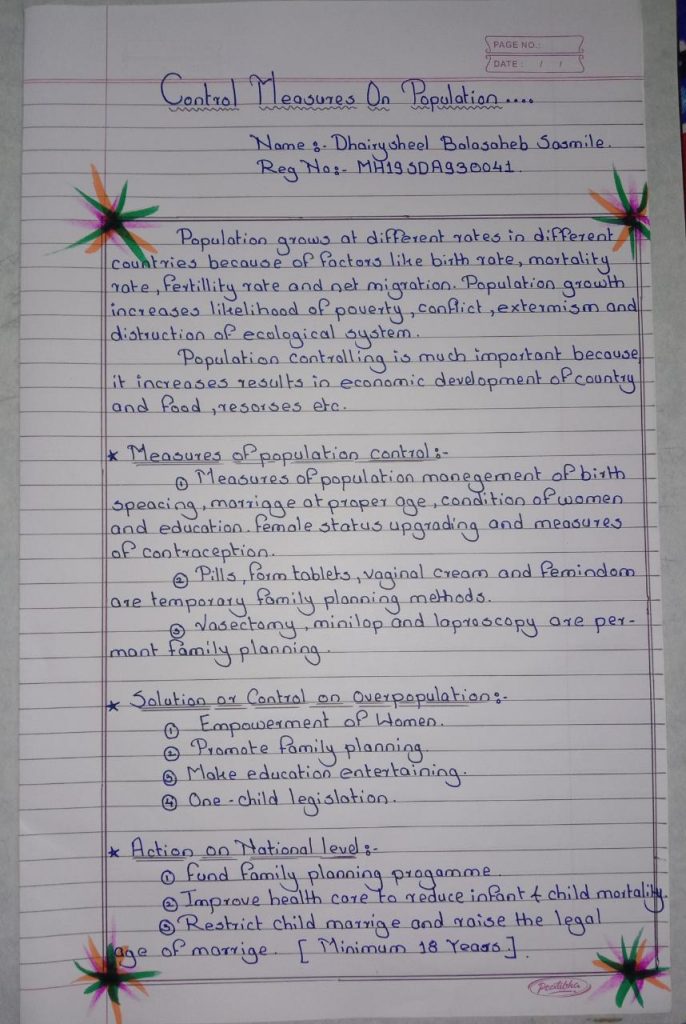 PAGE NO.:
DATE: / /
Control Measures On Population....
Name :- Dhairysheel Balasaheb Sasmile.
Reg No:- MH19SDA930041.
Population grows at different rates in different
countries because of factors like birth rate, mortality
rate, fertillity rate and net migration. Population growth
increases likelihood of poverty, conflict, extermism and
distruction of ecological system.
Population controlling is much important because
it increases results in economic development of country
and food, resorses etc.
* Measures of population control:-
① Measures of population manegement of birth
speacing, marriage at proper age, condition of women
and education. female status upgrading and measures
of contraception.
② Pills, form tablets, vaginal cream and femindom
are temporary family planning methods.
③ Vasectomy, minilop and laproscopy are per-
mant family planning.
* Solution or Control on Overpopulation:-
① Empowerment of Women.
② Promote family planning.
③ Make education entertaining.
④ One-child legislation.
* Action on National level:-
① fund family planning progamme.
② Improve health care to reduce infant & child mortality.
③ Restrict child marrige and raise the legal
age of marrige. [ Minimum 18 Years ].
Pratibha